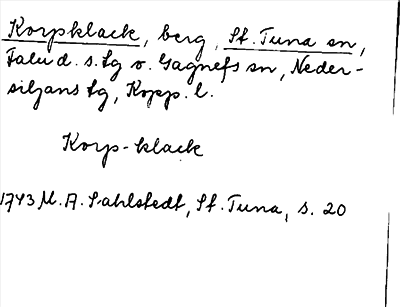 Korpklack, berg, St. Tuna sn,
Falu d. s. tg o. Gagnefs sn, Neder-
siljans tg, Kopp. l.
Korp-klack
1743 M. A. Sahlstedt, St. Tuna, s. 20